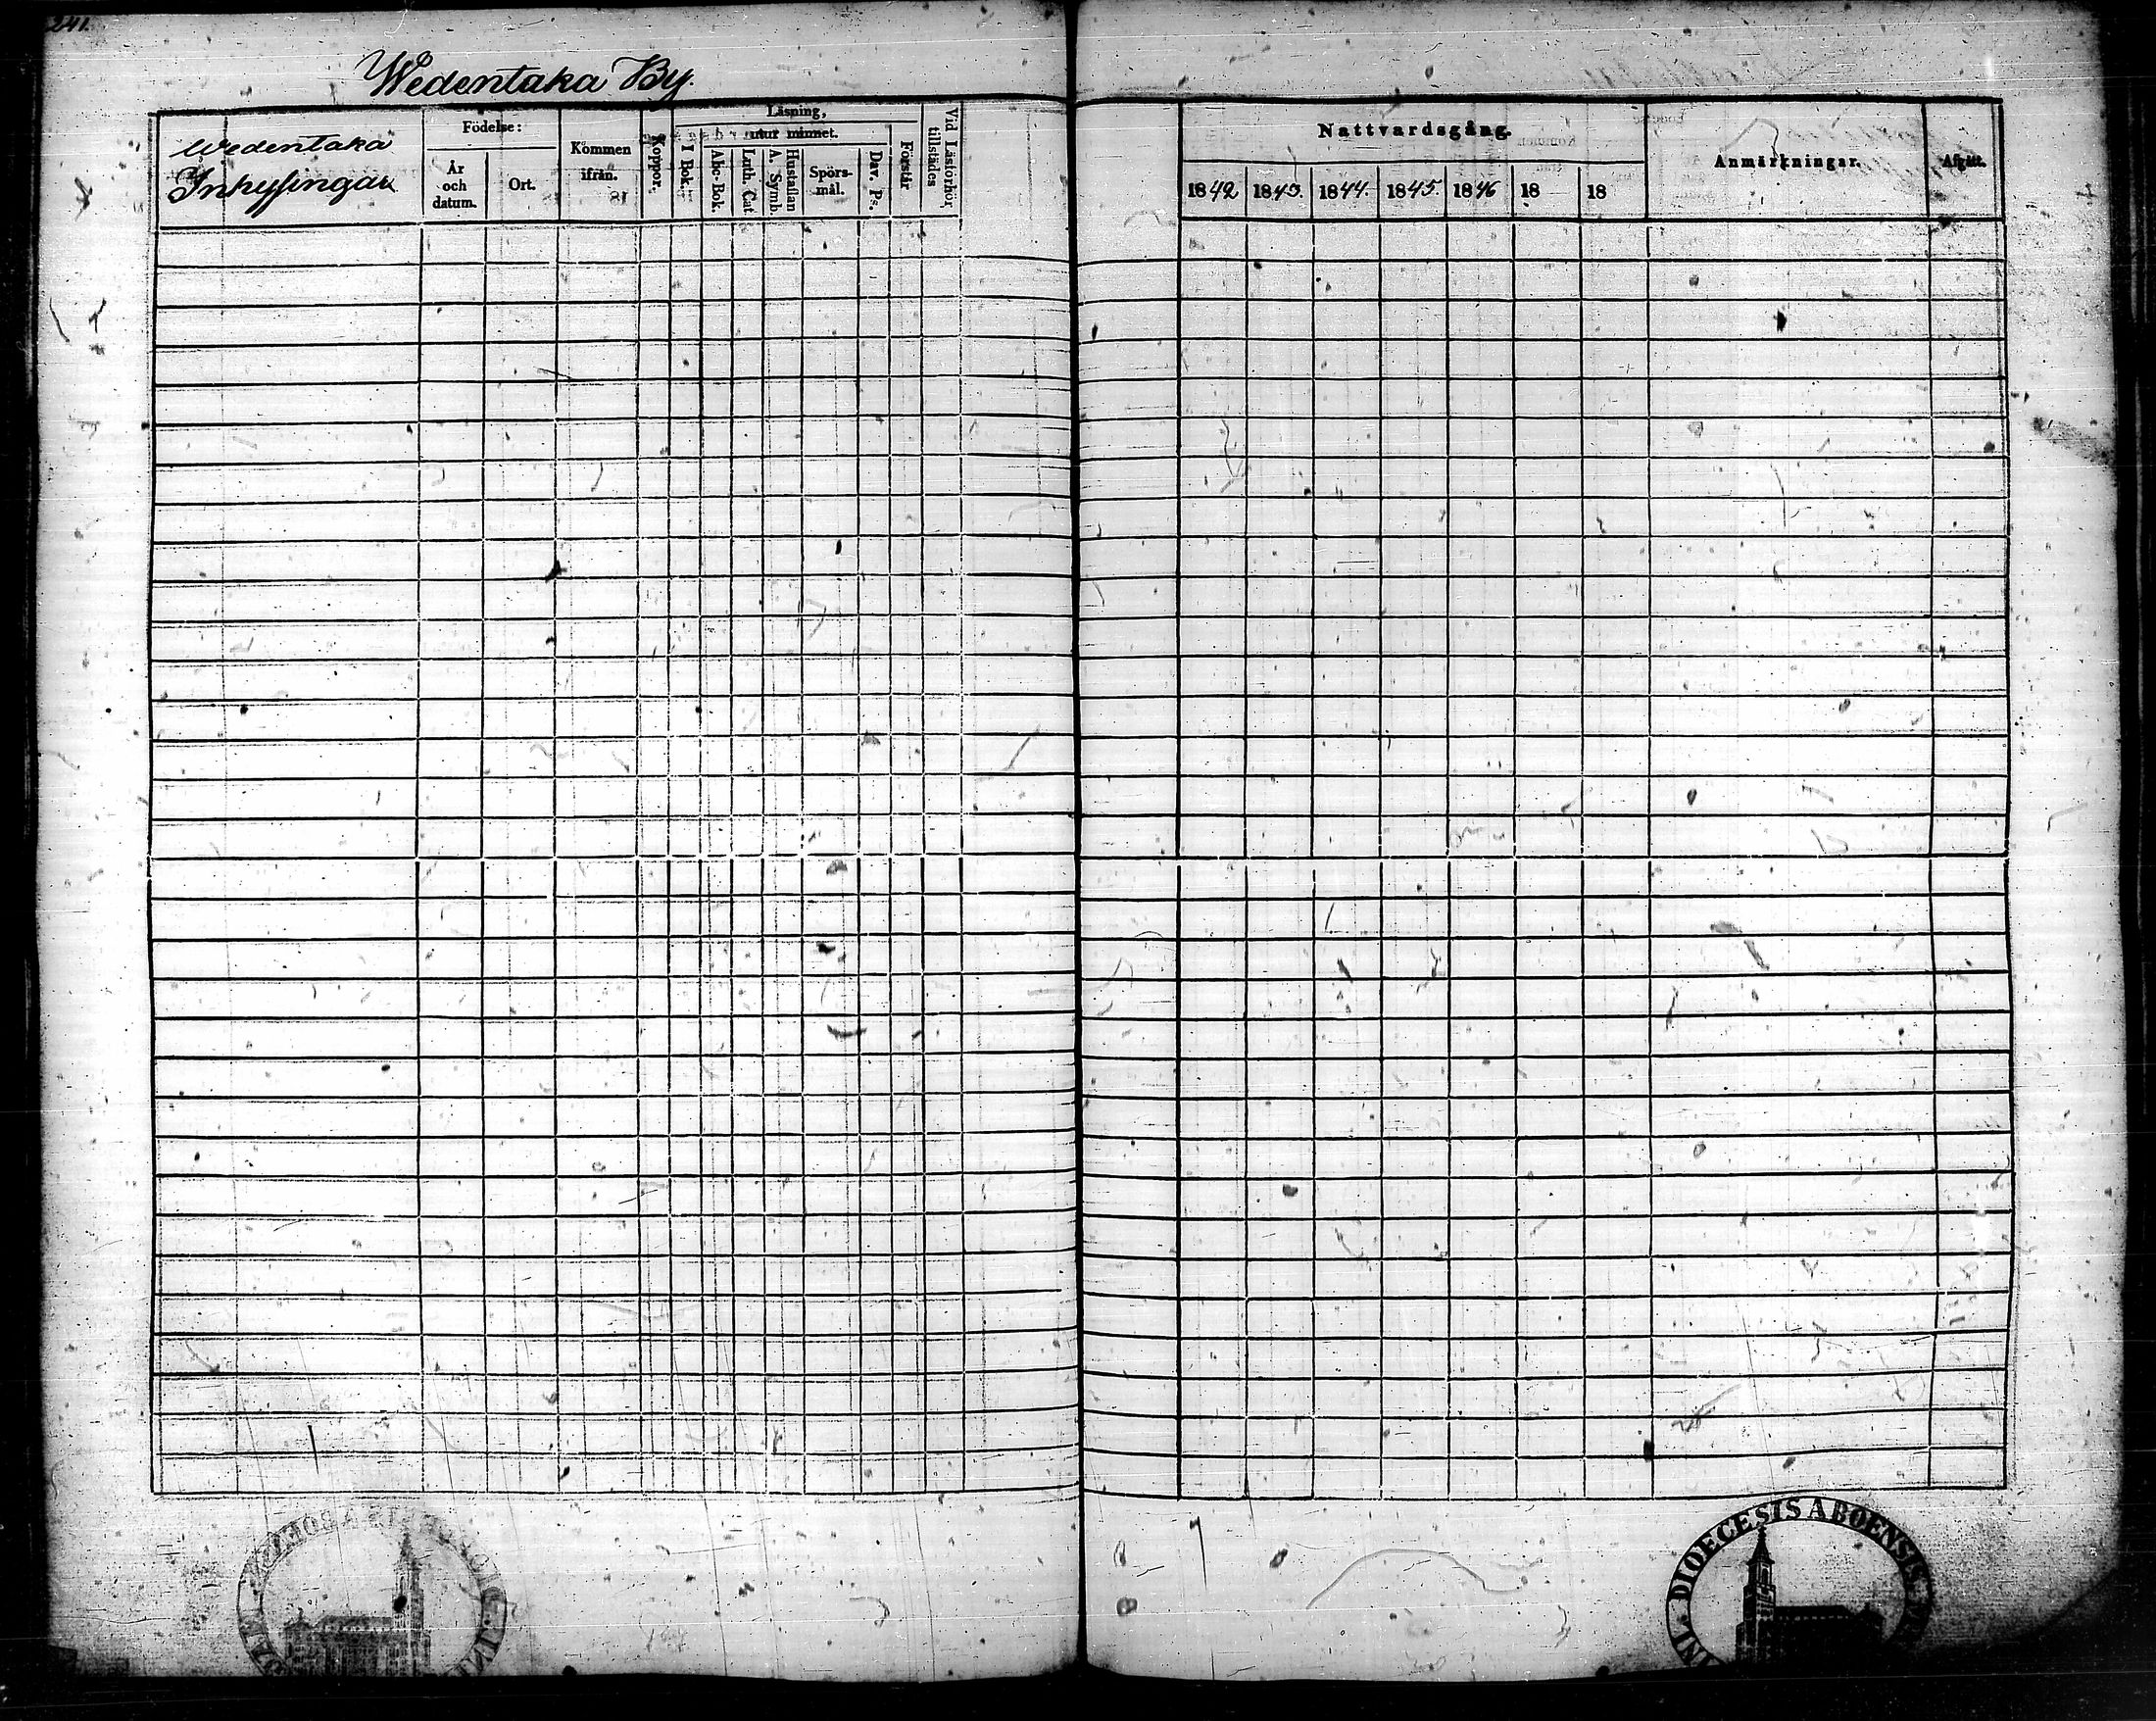 241.
Wedentaka By.
Wedentaka
Inhysingar
Födelse:
År
och
datum.
Ort.
Kommen
ifrån.
Koppor.
Läsning,
utur minnet.
I Bok.
Abc-Bok.
Luth. Cat.
Hustaflan
A. Symb.
Spörs-
mål.
Dav. Ps.
Förstår
Vid Läsförhör
tillstädes
Nattvardsgång.
1842 1843. 1844. 1845. 1846 18 18
Anmärkningar.
Afgått.
DIOECESIS ABOENSIS.